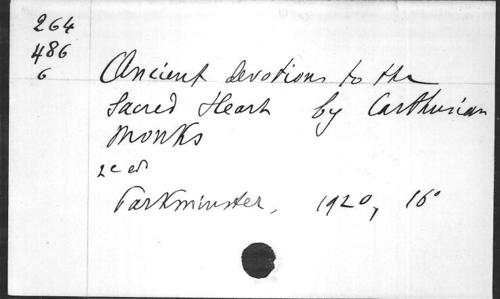 264
486
6
Ancient devotions to the
Sacred Heart by Carthusian
Monks
2e ed
Parkminster, 1920, 16°